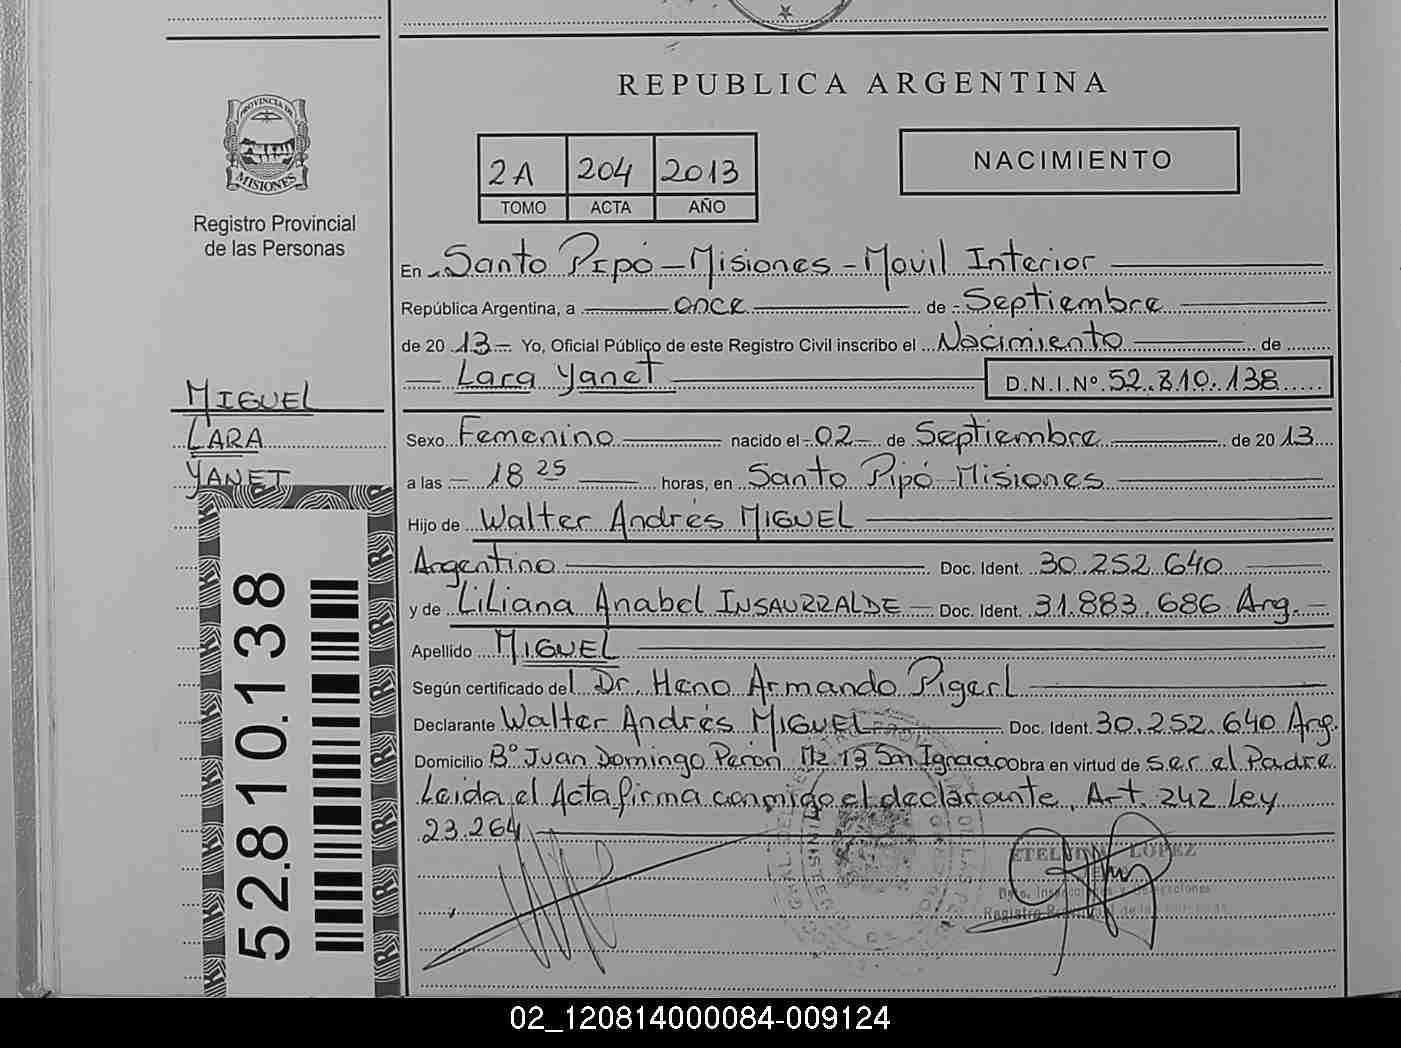 REPUBLICA ARGENTINA
PROVINCIA DE
MISIONES
Registro Provincial
de las Personas
2A 204 2013
TOMO ACTA AÑO
NACIMIENTO
En Santo Pipó - Misiones - Movil Interior
República Argentina, a once de Septiembre
de 20 13 Yo, Oficial Público de este Registro Civil inscribo el Nacimiento de
Lara Yanet D.N.I.Nº 52.810.138
MIGUEL
LARA
YANET
Sexo Femenino nacido el 02 de Septiembre de 20 13
a las 18 25 horas, en Santo Pipó Misiones
Hijo de Walter Andrés MIGUEL
Argentino Doc. Ident. 30.252.640
y de Liliana Anabel INSAURRALDE Doc. Ident. 31.883.686 Arg.
Apellido MIGUEL
Según certificado del Dr. Heno Armando Pigerl
Declarante Walter Andrés MIGUEL Doc. Ident. 30.252.640 Arg.
Domicilio Bº Juan Domingo Perón Mz 13 San Ignacio obra en virtud de ser el Padre
Leida el Acta firma conmigo el declarante, Art. 242 Ley
23.264
52.810.138
LOPEZ
Registro
02_120814000084-009124